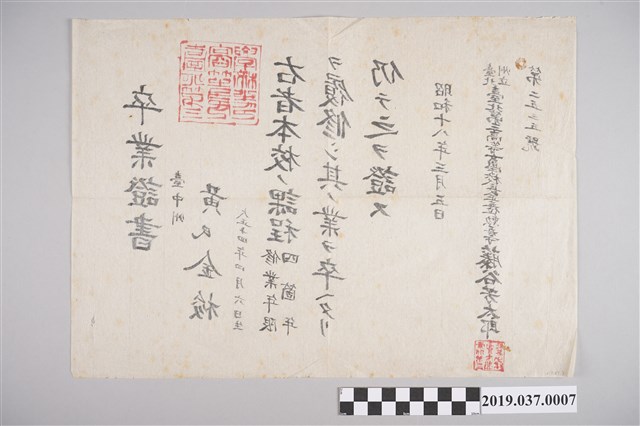 卒業證書
臺中州
黃氏金梭
大正十四年四月六日生
右者本校ノ課程修業年限四箇年
ヲ履修シ其ノ業ヲ卒ヘタリ
仍テ之ヲ證ス
昭和十八年三月五日
臺北州立臺北第三高等女學校長 藤谷芳太郎
第二五二五號
2019.037.0007